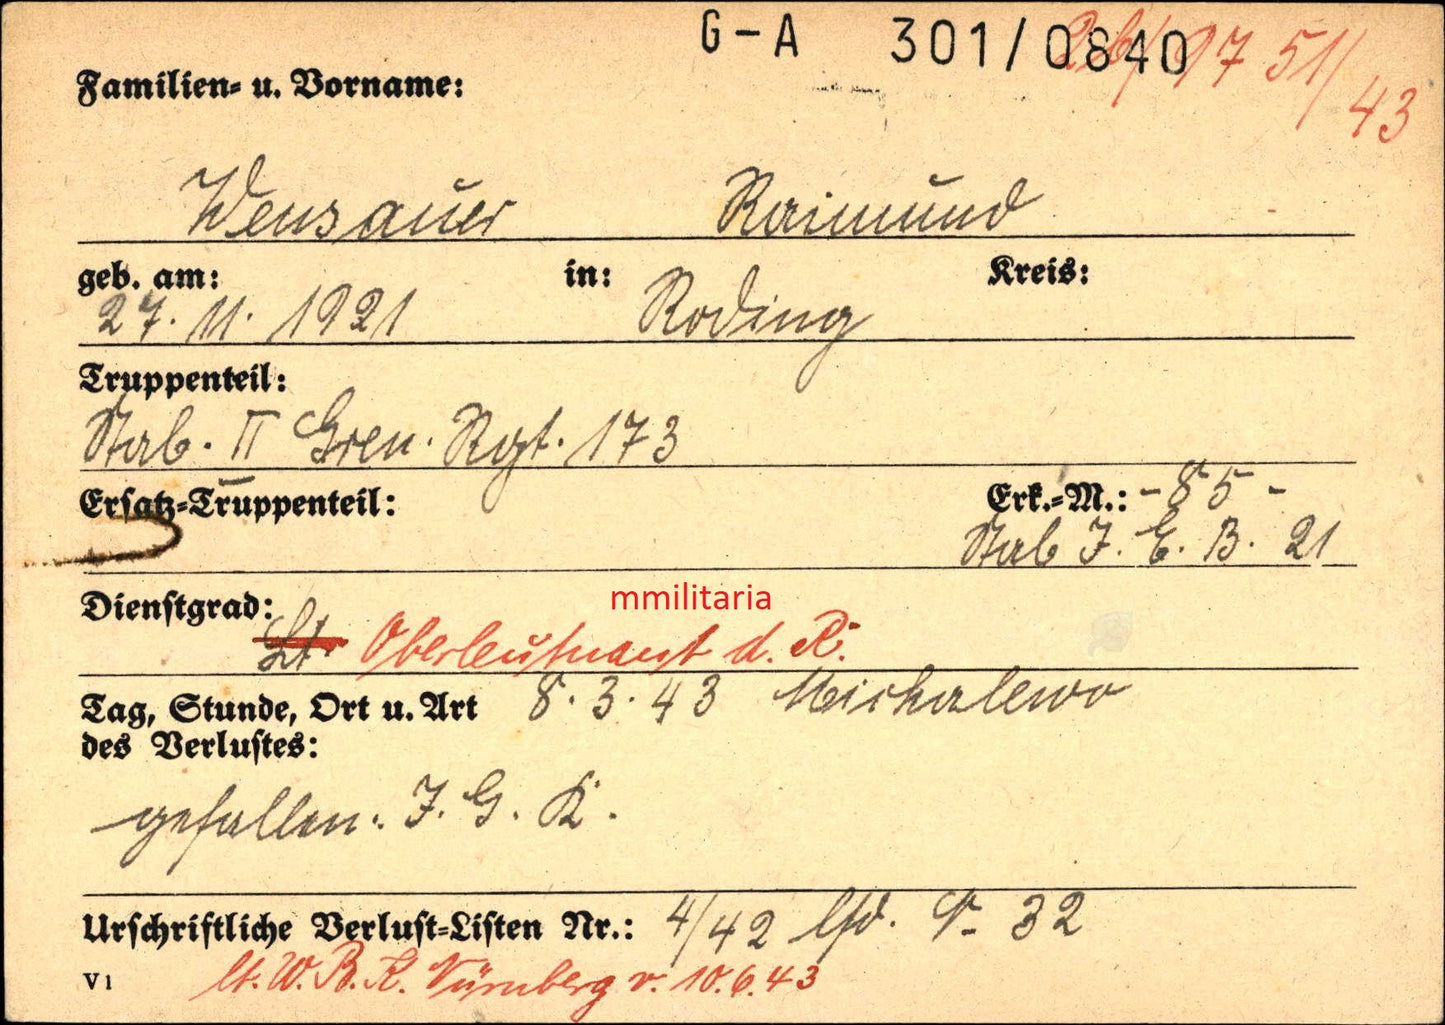 G-A 301/0840
51/43
Familien- u. Vorname:
Wensauer Raimund
geb. am: in: Kreis:
27. 11. 1921 Roding
Truppenteil:
Stab. II Gren. Rgt. 173
Ersatz-Truppenteil: Erk.-M.: -85-
Stab J. E. B. 21
mmilitaria
Dienstgrad:
Lt. Oberleutnant d. R.
Tag, Stunde, Ort u. Art 8. 3. 43 Michalewo
des Verlustes:
gefallen. J. G. K.
Urschriftliche Verlust-Listen Nr.: 4/42 lfd. 32
V1 lt. W. B. K. Nürnberg v. 10.6.43